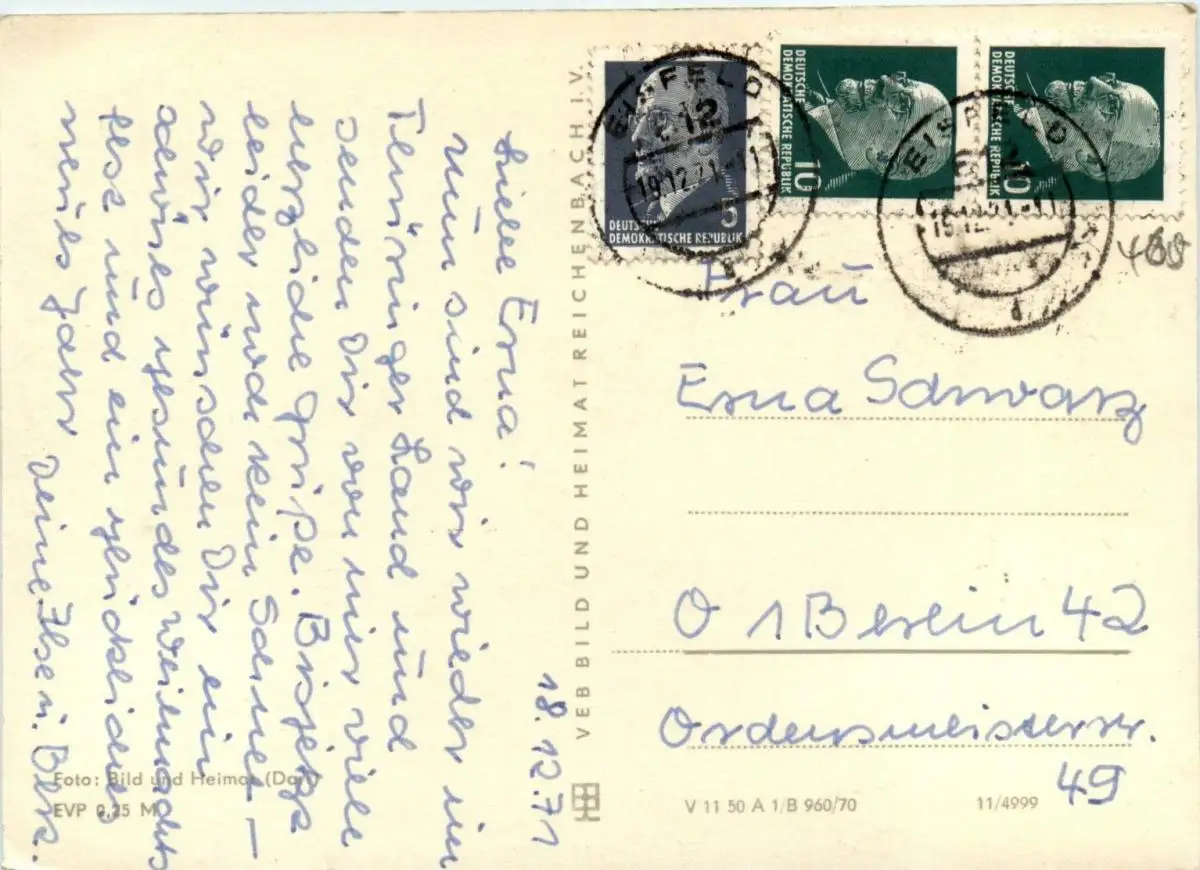 18.12.71
Liebe Erna!
Nun sind wir wieder im
Thüringer Land und
senden Dir von hier viele
herzliche Grüße. Bis jetzt
leider noch kein Schnee –
Wir wünschen Dir ein
schönes gesundes Weihnachts
fest und ein glückliches
neues Jahr Deine Ilse u.
Foto: Bild und Heimat
EVP 0,25 M
VEB BILD UND HEIMAT REICHENBACH I. V.
EISFELD
19.12.71-11
DEUTSCHE
DEMOKRATISCHE REPUBLIK
5
DEUTSCHE
DEMOKRATISCHE REPUBLIK
10
DEUTSCHE
DEMOKRATISCHE REPUBLIK
10
EISFELD
Frau
Erna Schwarz
1 Berlin 42
Ordensmeisterstr.
49
V 11 50 A 1/B 960/70
11/4999